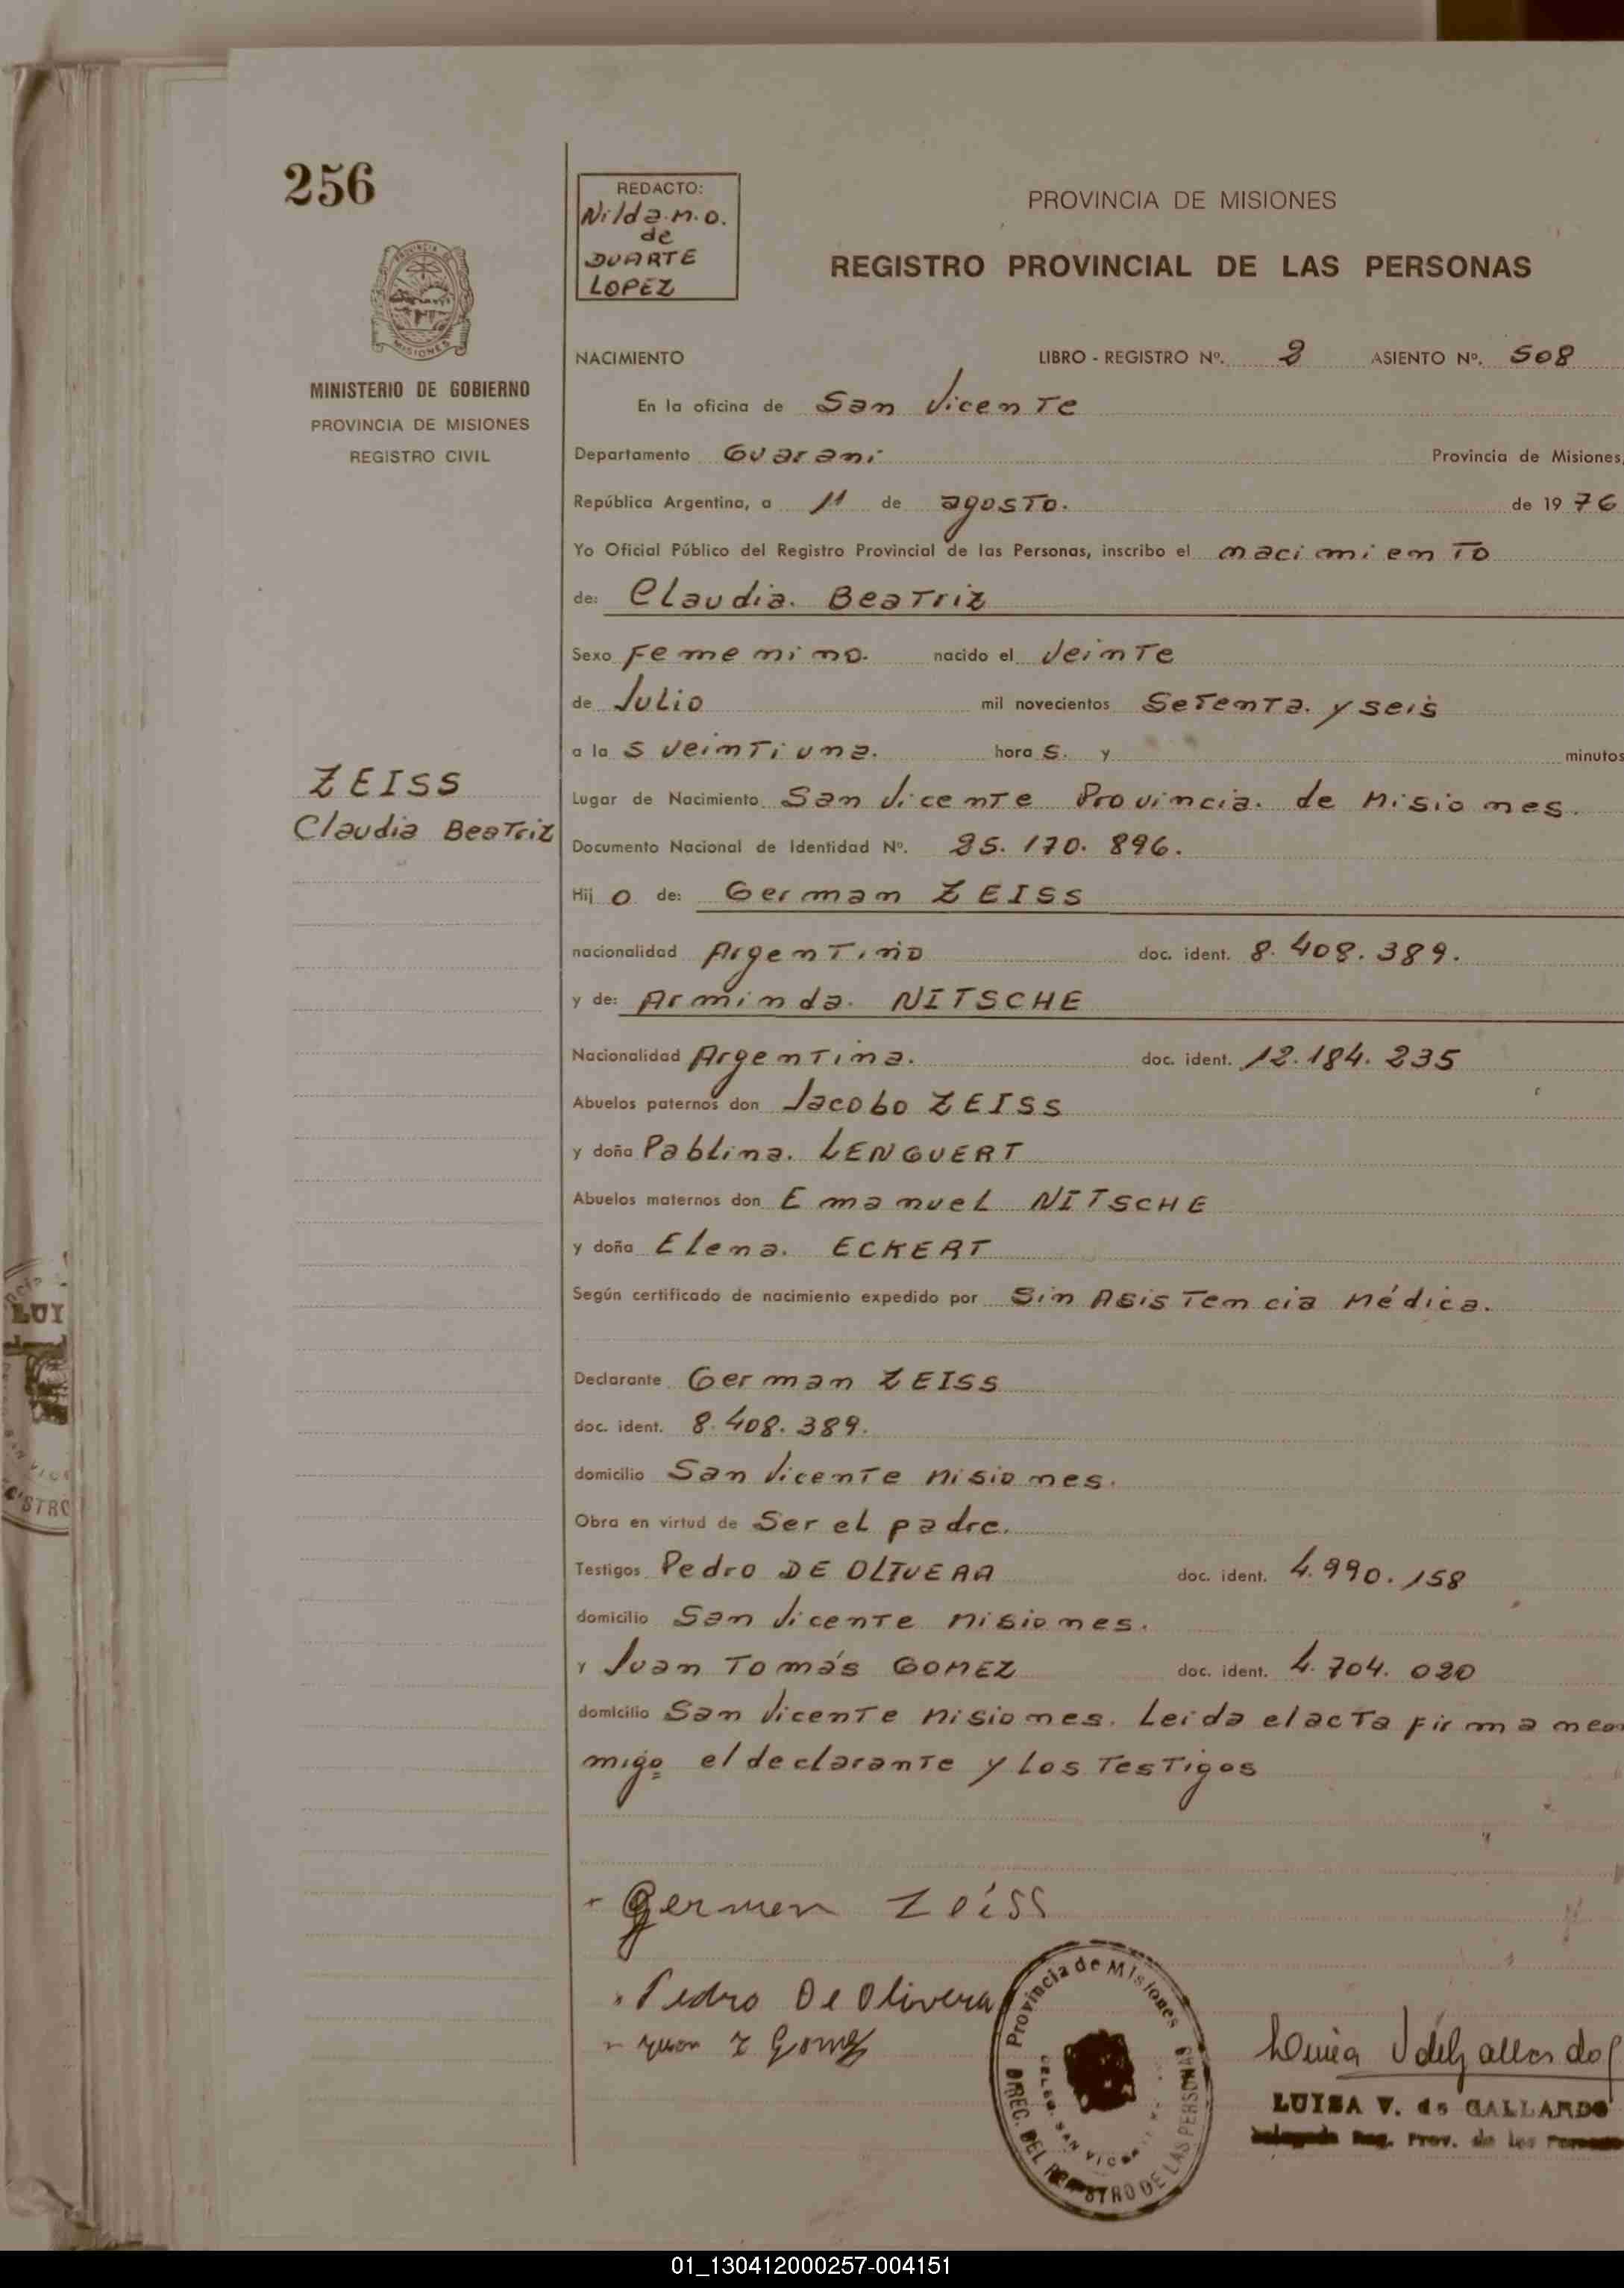 256
REDACTO:
Nilda. M. O.
de
DUARTE
LOPEZ
PROVINCIA DE MISIONES
REGISTRO PROVINCIAL DE LAS PERSONAS
PROVINCIA DE
MISIONES
MINISTERIO DE GOBIERNO
PROVINCIA DE MISIONES
REGISTRO CIVIL
NACIMIENTO LIBRO - REGISTRO Nº. 2 ASIENTO Nº. 508
En la oficina de San Vicente
Departamento Guarani Provincia de Misiones,
República Argentina, a 11 de agosto. de 1976
Yo Oficial Público del Registro Provincial de las Personas, inscribo el nacimiento
de: Claudia. Beatriz
Sexo Femenino. nacido el Veinte
de Julio mil novecientos Setenta. y seis
a las veintiuna. horas. y minutos
ZEISS
Claudia Beatriz
Lugar de Nacimiento San Vicente Provincia. de Misiones.
Documento Nacional de Identidad Nº. 25.170.896.
Hijo de: German ZEISS
nacionalidad Argentino doc. ident. 8.408.389.
y de: Arminda. NITSCHE
Nacionalidad Argentina. doc. ident. 12.184.235
Abuelos paternos don Jacobo ZEISS
y doña Pablina. LENGUERT
Abuelos maternos don Emanuel NITSCHE
y doña Elena. ECKERT
Según certificado de nacimiento expedido por Sin Asistencia Médica.
Declarante German ZEISS
doc. ident. 8.408.389.
domicilio San Vicente Misiones.
Obra en virtud de Ser el padre.
Testigos Pedro DE OLIVERA doc. ident. 4.990.158
domicilio San Vicente Misiones.
y Juan Tomás GOMEZ doc. ident. 4.704.020
domicilio San Vicente Misiones. Leida el acta firmaneon
migo el declarante y los Testigos
German Zeiss
Pedro De Olivera
Juan T Gomez
Provincia de Misiones
DIREC. DEL REGISTRO DE LAS PERSONAS
DELEG. SAN VICENTE
Luisa V de Gallardo
LUISA V. de GALLARDO
Delegada Reg. Prov. de las Personas
LUI
ISTRO
01_130412000257-004151